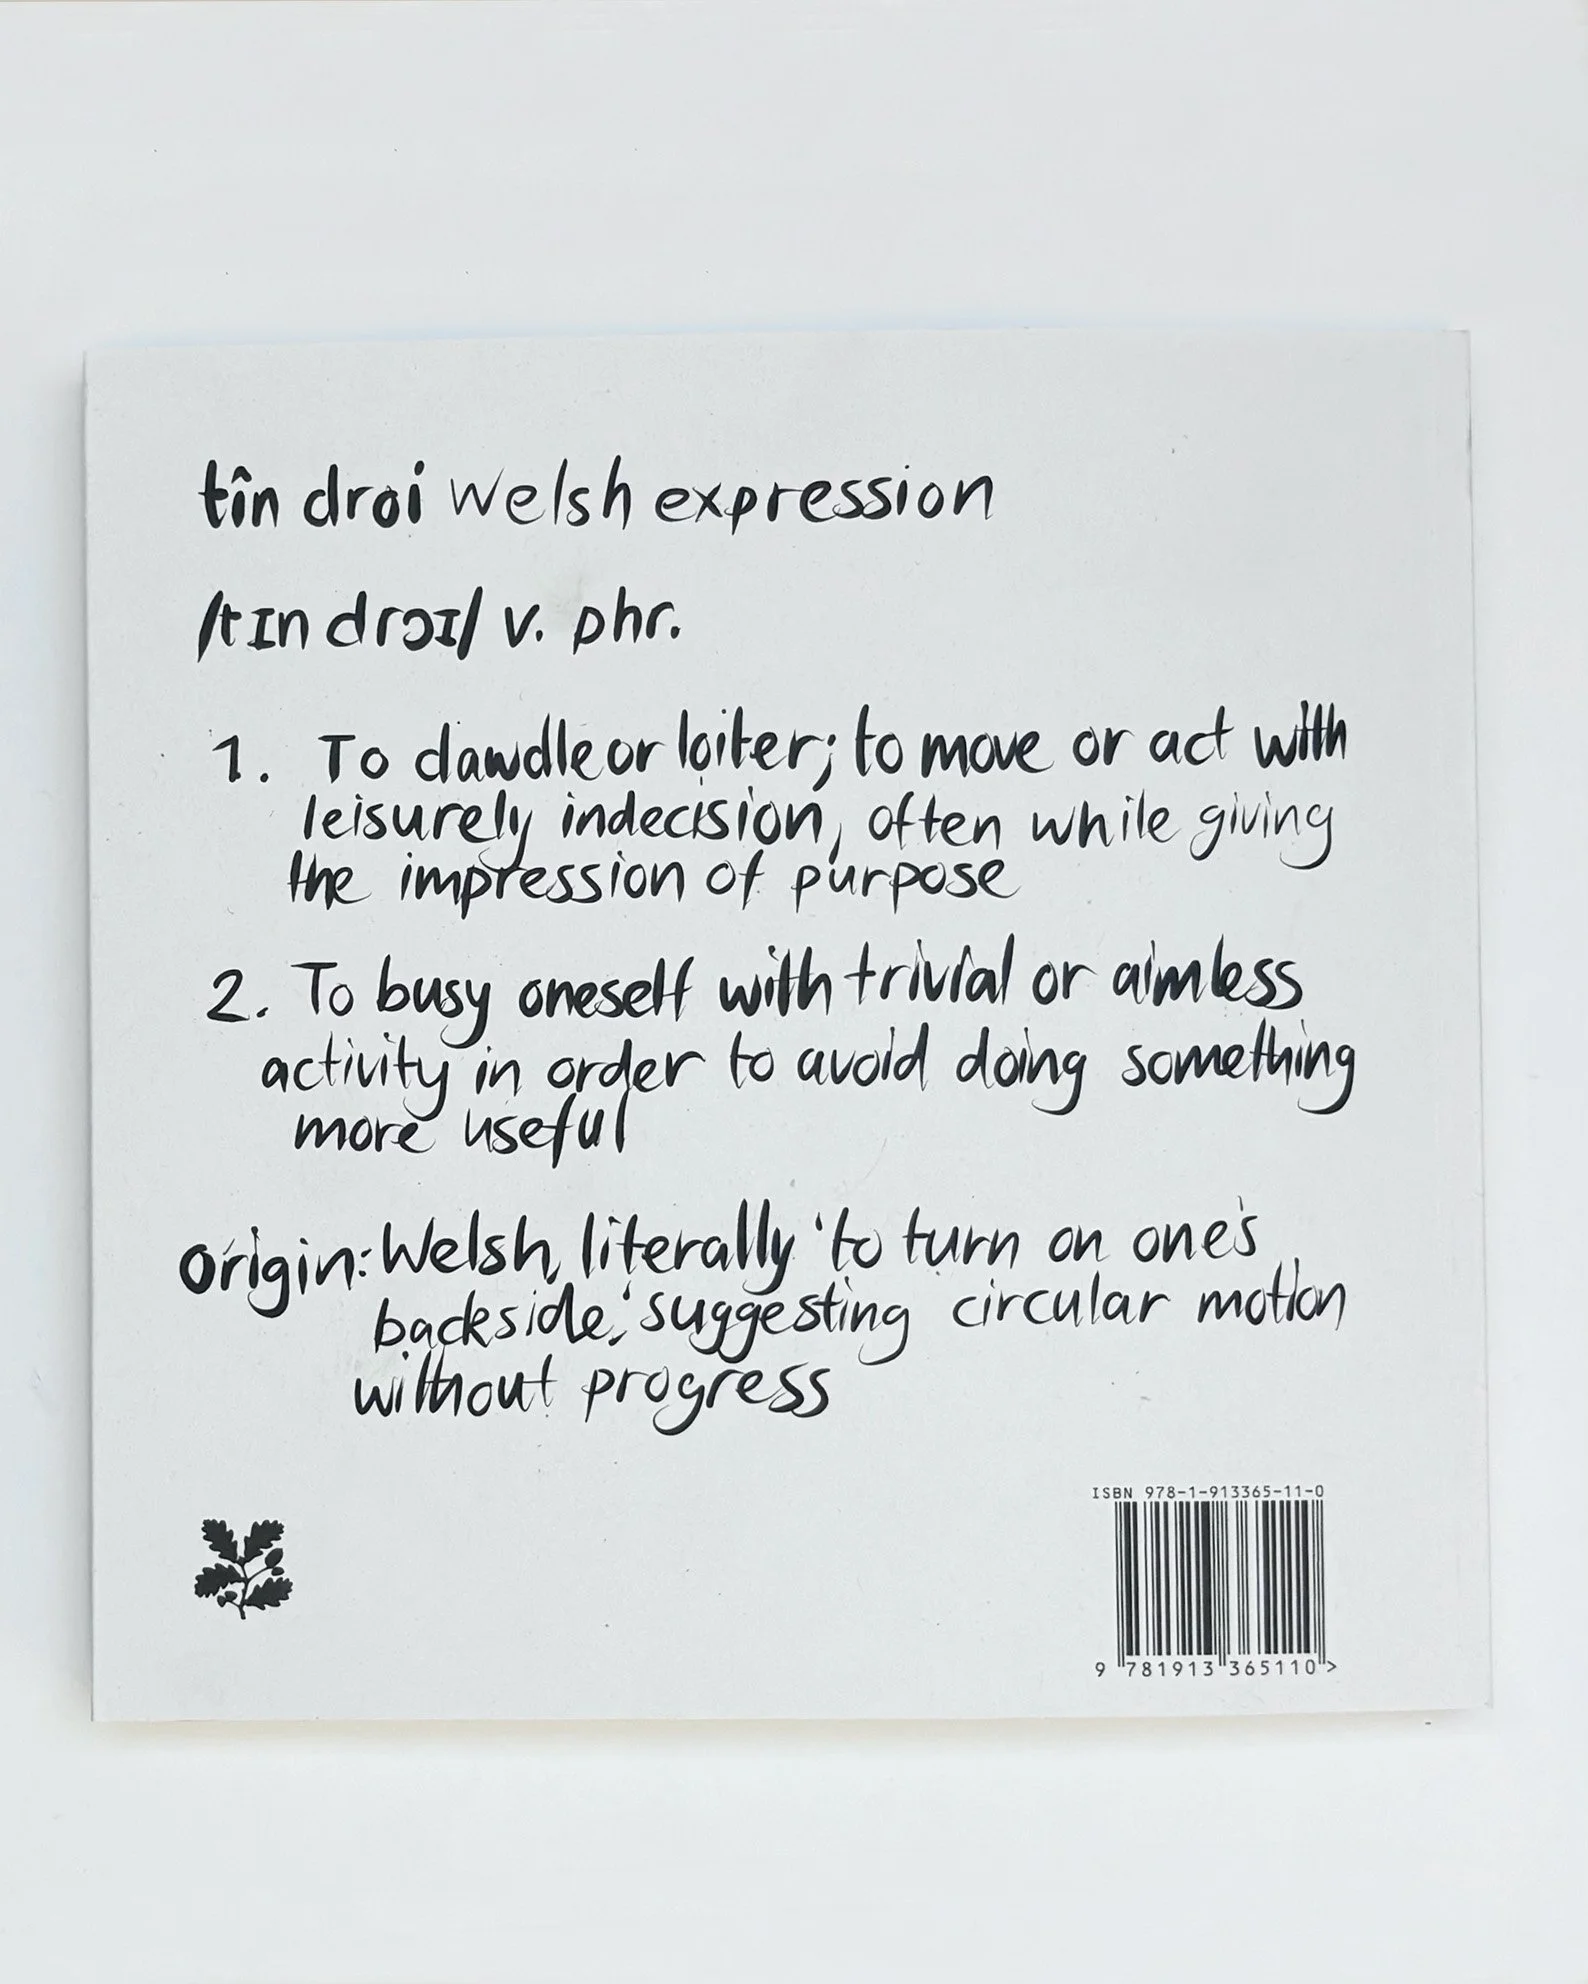 tîn droi Welsh expression
/tɪn drɔɪ/ v. phr.
1. To dawdle or loiter; to move or act with
leisurely indecision, often while giving
the impression of purpose
2. To busy oneself with trivial or aimless
activity in order to avoid doing something
more useful
Origin: Welsh, literally 'to turn on one's
backside,' suggesting circular motion
without progress
ISBN 978-1-913365-11-0
9 781913 365110 >